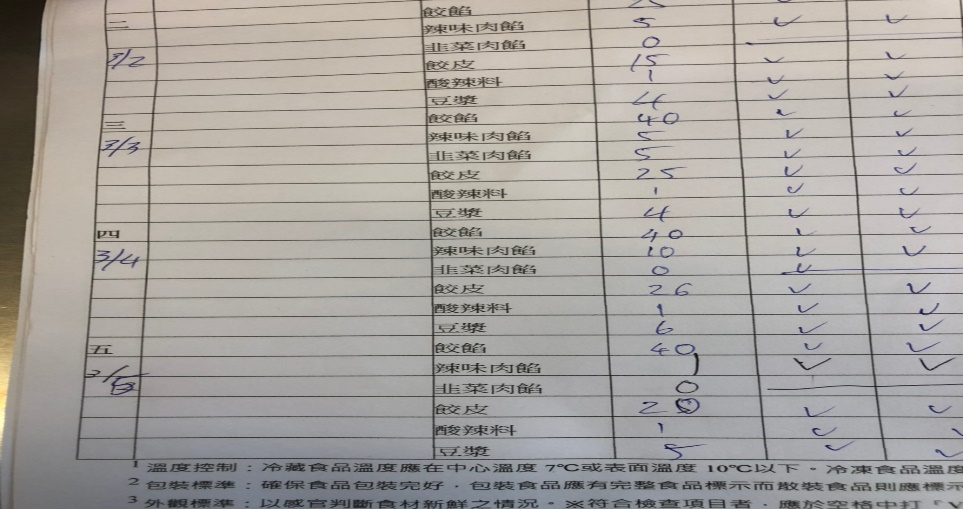 餃餡 25 ✓
二 辣味肉餡 5 ✓ ✓
韭菜肉餡 0
3/2 餃皮 15 ✓ ✓
酸辣料 1 ✓ ✓
豆漿 4 ✓ ✓
三 餃餡 40 ✓ ✓
3/3 辣味肉餡 5 ✓ ✓
韭菜肉餡 5 ✓ ✓
餃皮 25 ✓ ✓
酸辣料 1 ✓ ✓
豆漿 4 ✓ ✓
四 餃餡 40 ✓ ✓
3/4 辣味肉餡 10 ✓ ✓
韭菜肉餡 0 ✓
餃皮 26 ✓ ✓
酸辣料 1 ✓ ✓
豆漿 6 ✓ ✓
五 餃餡 40 ✓ ✓
3/5 辣味肉餡 1 ✓ ✓
韭菜肉餡 0
餃皮 20 ✓ ✓
酸辣料 1 ✓ ✓
豆漿 5 ✓ ✓
1 溫度控制：冷藏食品溫度應在中心溫度 7℃或表面溫度 10℃以下。冷凍食品溫度
2 包裝標準：確保食品包裝完好，包裝食品應有完整食品標示而散裝食品則應標示
3 外觀標準：以感官判斷食材新鮮之情況。※符合檢查項目者，應於空格中打「V